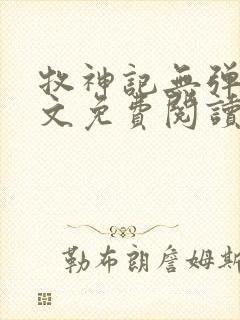 牧神記無彈
文免費閱讀
勒布朗詹姆斯